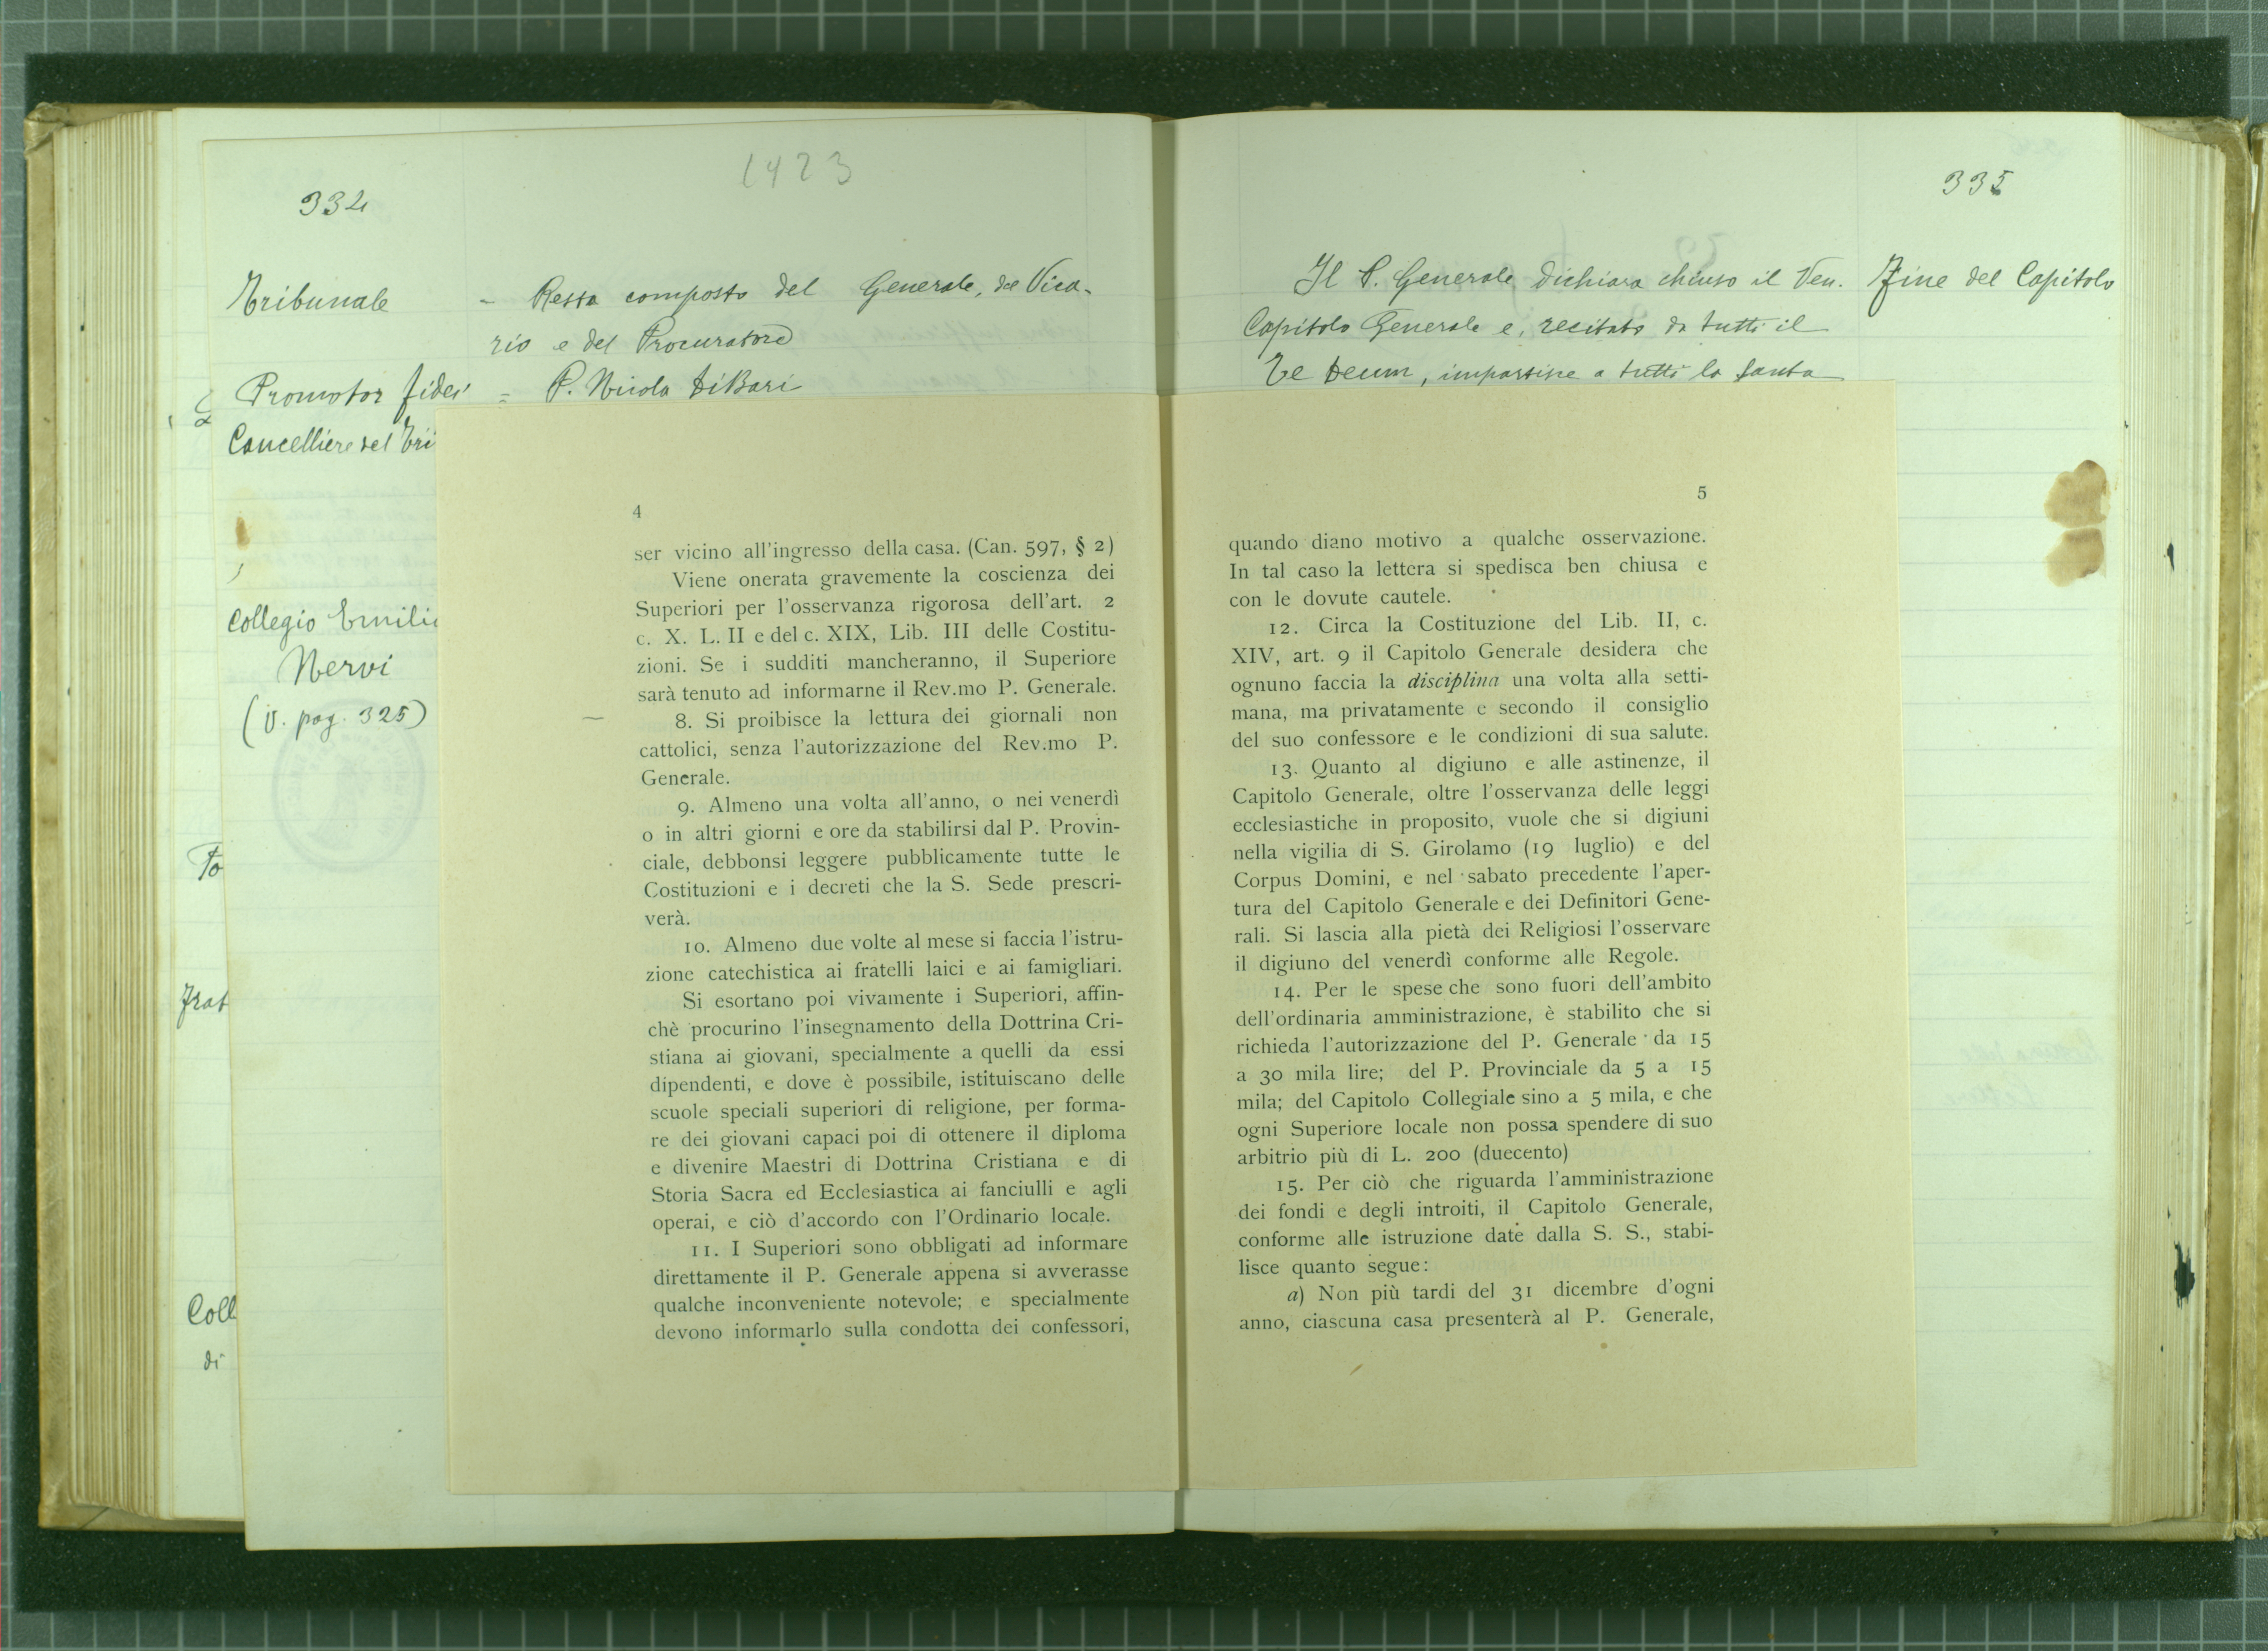 1423
334
Tribunale - Resta composto del Generale, del Vica-
rio e del Procuratore
Promotor fidei = P. Nicola DiBari
Cancelliere del Tri
Collegio Emili
Nervi
(V. pag. 325)
To
Frat
Coll
di
4
ser vicino all'ingresso della casa. (Can. 597, § 2)
Viene onerata gravemente la coscienza dei
Superiori per l'osservanza rigorosa dell'art. 2
c. X. L. II e del c. XIX, Lib. III delle Costitu-
zioni. Se i sudditi mancheranno, il Superiore
sarà tenuto ad informarne il Rev.mo P. Generale.
8. Si proibisce la lettura dei giornali non
cattolici, senza l'autorizzazione del Rev.mo P.
Generale.
9. Almeno una volta all'anno, o nei venerdì
o in altri giorni e ore da stabilirsi dal P. Provin-
ciale, debbonsi leggere pubblicamente tutte le
Costituzioni e i decreti che la S. Sede prescri-
verà.
10. Almeno due volte al mese si faccia l'istru-
zione catechistica ai fratelli laici e ai famigliari.
Si esortano poi vivamente i Superiori, affin-
chè procurino l'insegnamento della Dottrina Cri-
stiana ai giovani, specialmente a quelli da essi
dipendenti, e dove è possibile, istituiscano delle
scuole speciali superiori di religione, per forma-
re dei giovani capaci poi di ottenere il diploma
e divenire Maestri di Dottrina Cristiana e di
Storia Sacra ed Ecclesiastica ai fanciulli e agli
operai, e ciò d'accordo con l'Ordinario locale.
11. I Superiori sono obbligati ad informare
direttamente il P. Generale appena si avverasse
qualche inconveniente notevole; e specialmente
devono informarlo sulla condotta dei confessori,
335
Il P. Generale dichiara chiuso il Ven. Fine del Capitolo
Capitolo Generale e, recitato da tutti il
Te Deum, impartisce a tutti la santa
5
quando diano motivo a qualche osservazione.
In tal caso la lettera si spedisca ben chiusa e
con le dovute cautele.
12. Circa la Costituzione del Lib. II, c.
XIV, art. 9 il Capitolo Generale desidera che
ognuno faccia la disciplina una volta alla setti-
mana, ma privatamente e secondo il consiglio
del suo confessore e le condizioni di sua salute.
13. Quanto al digiuno e alle astinenze, il
Capitolo Generale, oltre l'osservanza delle leggi
ecclesiastiche in proposito, vuole che si digiuni
nella vigilia di S. Girolamo (19 luglio) e del
Corpus Domini, e nel sabato precedente l'aper-
tura del Capitolo Generale e dei Definitori Gene-
rali. Si lascia alla pietà dei Religiosi l'osservare
il digiuno del venerdì conforme alle Regole.
14. Per le spese che sono fuori dell'ambito
dell'ordinaria amministrazione, è stabilito che si
richieda l'autorizzazione del P. Generale da 15
a 30 mila lire; del P. Provinciale da 5 a 15
mila; del Capitolo Collegiale sino a 5 mila, e che
ogni Superiore locale non possa spendere di suo
arbitrio più di L. 200 (duecento)
15. Per ciò che riguarda l'amministrazione
dei fondi e degli introiti, il Capitolo Generale,
conforme alle istruzione date dalla S. S., stabi-
lisce quanto segue:
a) Non più tardi del 31 dicembre d'ogni
anno, ciascuna casa presenterà al P. Generale,